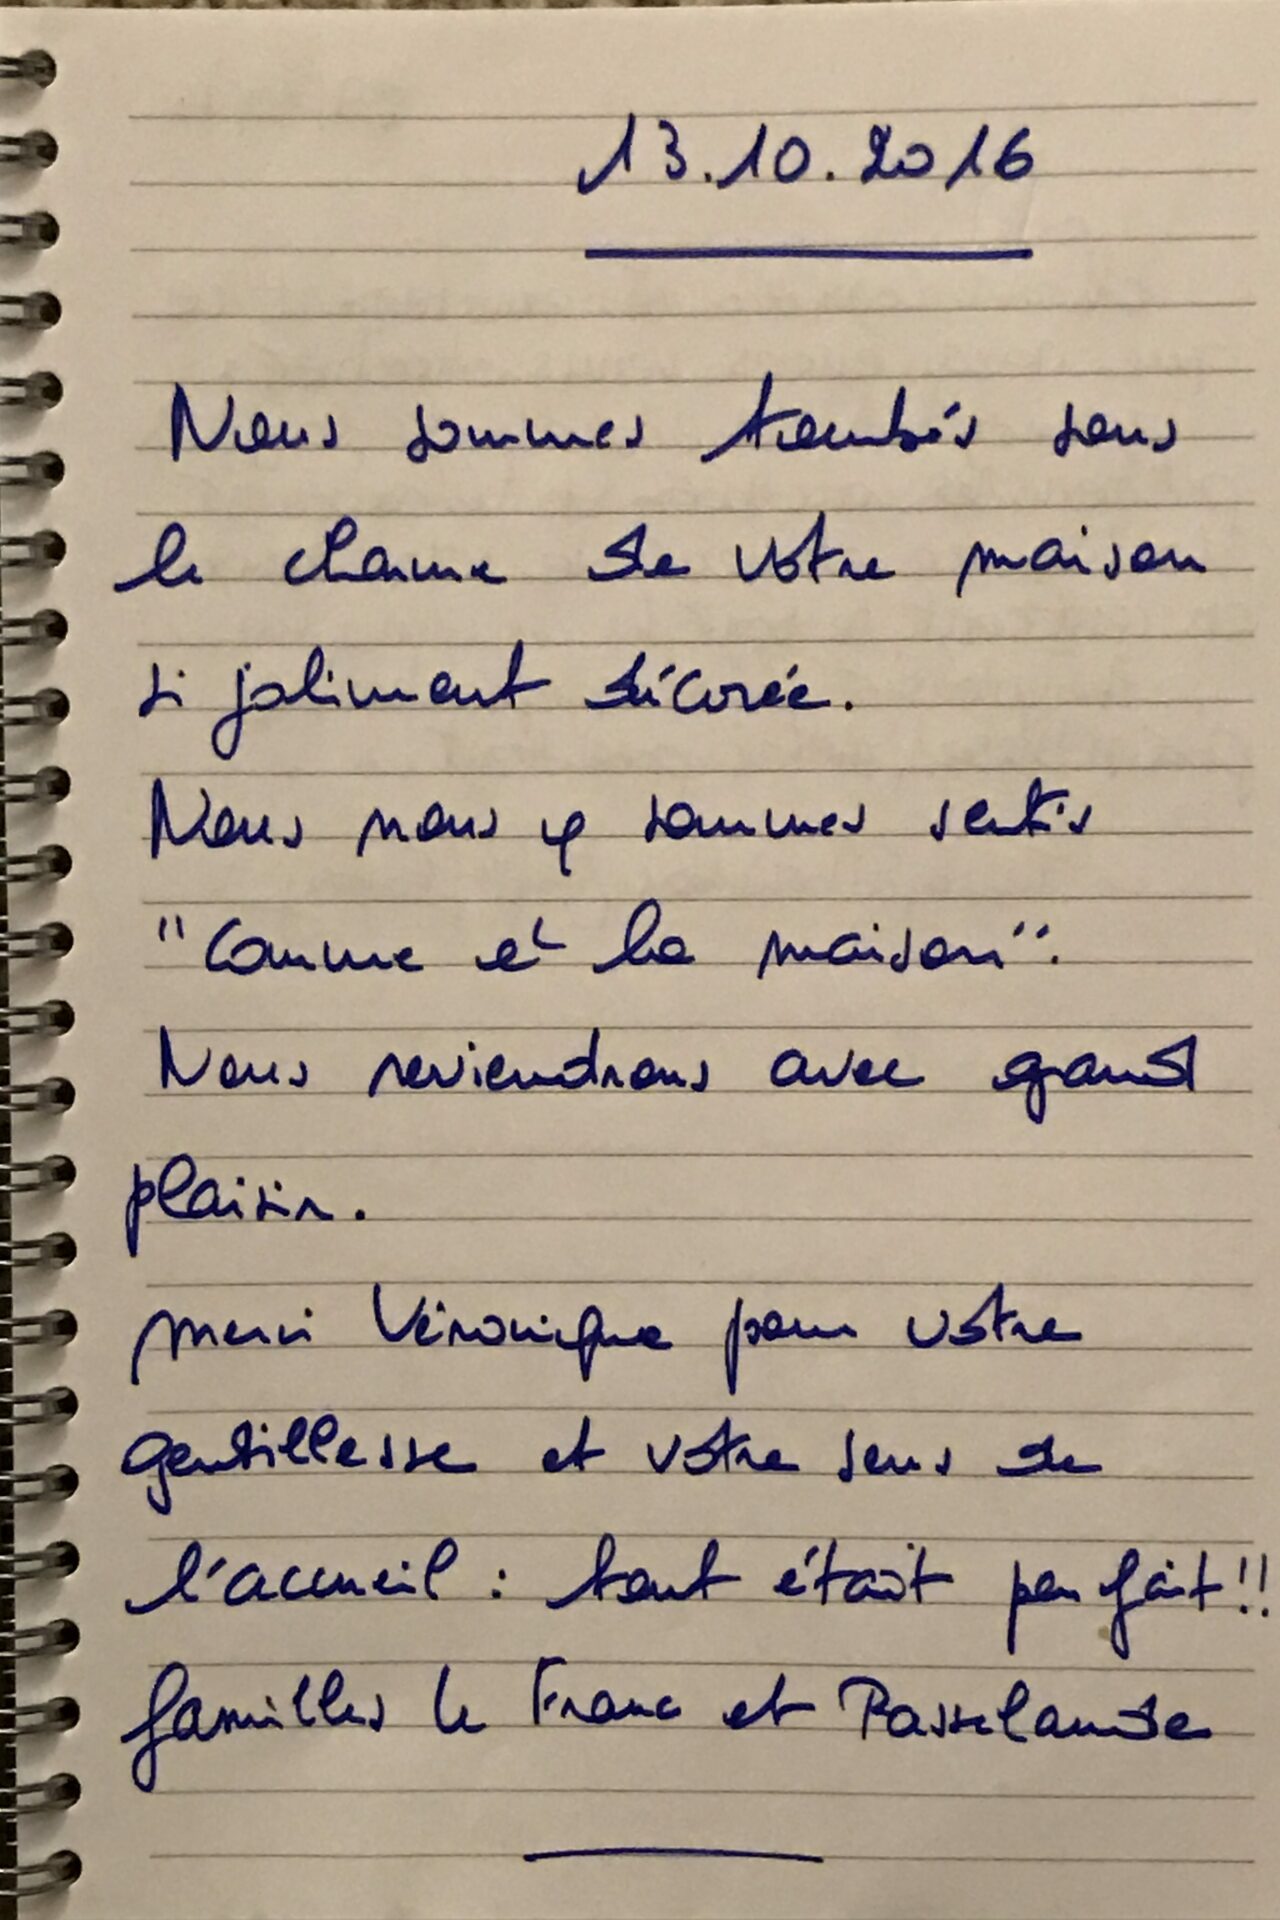 13.10.2016
Nous sommes tombés sous
le charme de votre maison
si joliment décorée.
Nous nous y sommes sentis
"comme à la maison".
Nous reviendrons avec grand
plaisir.
merci Véronique pour votre
gentillesse et votre sens de
l'accueil : tout était parfait !!
familles le Franc et Passelande